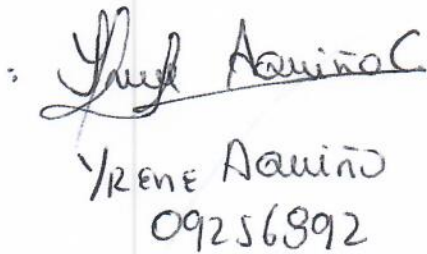 : Yrene Aquiño C.
YRENE AQuiño
09256892